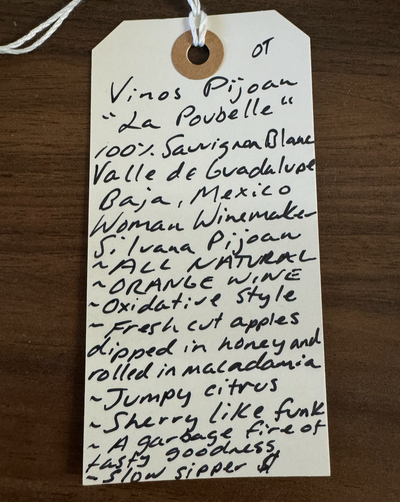 OT
Vinos Pijoan
"La Poubelle"
100% Sauvignon Blanc
Valle de Guadalupe
Baja, Mexico
Woman Winemaker
Silvana Pijoan
~ALL NATURAL
~ORANGE WINE
~Oxidative Style
~Fresh cut apples
dipped in honey and
rolled in macadamia
~Jumpy citrus
~Sherry like funk
~A garbage fire of
tasty goodness
~Slow sipper